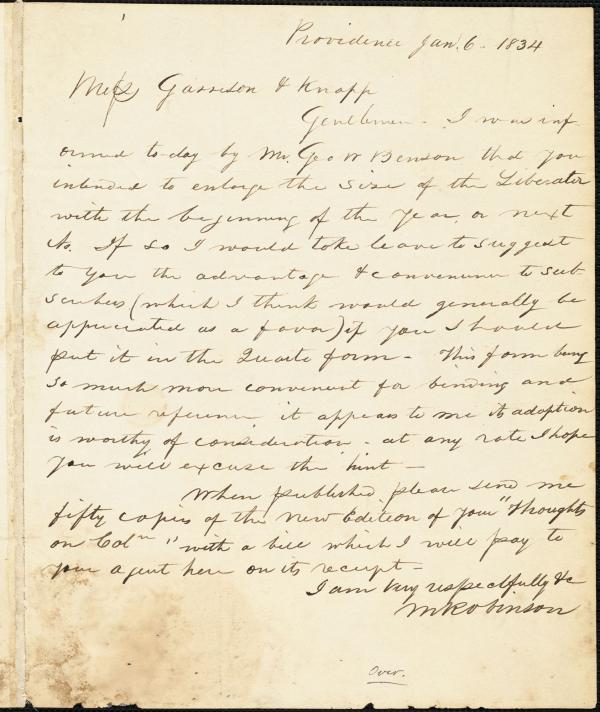 Providence Jan. 6 - 1834
Messrs Garrison & Knapp
Gentlemen - I was inf-
ormed to-day by Mr. Geo W Benson that you
intended to enlarge the size of the Liberator
with the beginning of the year, or next
No. If so I would take leave to suggest
to you the advantage & convenience to sub-
scribers (which I think would generally be
appreciated as a favor) if you should
put it in the Quarto form - This form being
so much more convenient for binding and
future reference it appears to me its adoption
is worthy of consideration - at any rate I hope
you will excuse the hint -
When published, please send me
fifty copies of the new Edition of your "Thoughts
on Coln" with a bill which I will pay to
your agent here on its receipt -
I am very respectfully &c
M Robinson
Over.